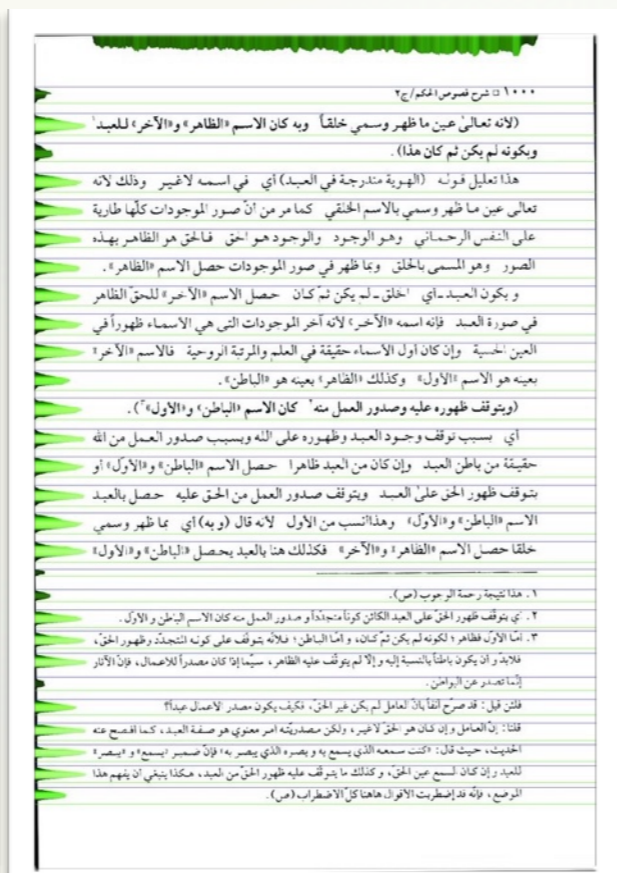 ١٠٠٠ □ شرح فصوص الحكم/ج٢
(لأنه تعالى عين ما ظهر وسمي خلقاً وبه كان الاسم «الظاهر» و«الآخر» للعبد١
وبكونه لم يكن ثم كان هذا).
هذا تعليل قوله (الهوية مندرجة في العبد) أي في اسمه لاغير وذلك لأنه
تعالى عين ما ظهر وسمي بالاسم الخلقي كما مر من أنّ صور الموجودات كلّها طارية
على النفس الرحماني وهو الوجود والوجود هو الحق فالحق هو الظاهر بهذه
الصور وهو المسمى بالخلق وبما ظهر في صور الموجودات حصل الاسم «الظاهر».
و بكون العبد ـ أي الخلق ـ لم يكن ثم كان حصل الاسم «الآخر» للحق الظاهر
في صورة العبد فإنه اسمه «الآخر» لأنه آخر الموجودات التي هي الأسماء ظهوراً في
العين الحسية وإن كان أول الأسماء حقيقة في العلم والمرتبة الروحية فالاسم «الآخر»
بعينه هو الاسم «الأول» وكذلك «الظاهر» بعينه هو «الباطن».
(وبتوقف ظهوره عليه وصدور العمل منه٢ كان الاسم «الباطن» و«الأول»٣).
أي بسبب توقف وجود العبد وظهوره على الله وبسبب صدور العمل من الله
حقيقة من باطن العبد وإن كان من العبد ظاهرا حصل الاسم «الباطن» و«الأول» أو
بتوقف ظهور الحق على العبد وبتوقف صدور العمل من الحق عليه حصل بالعبد
الاسم «الباطن» و«الأول» وهذا أنسب من الأول لأنه قال (وبه) أي بما ظهر وسمي
خلقا حصل الاسم «الظاهر» و«الآخر» فكذلك هنا بالعبد يحصل «الباطن» و«الأول»
١. هذا نتيجة رحمة الوجوب (ص).
٢. أي بتوقّف ظهور الحقّ على العبد الكائن كوناً متجدّداً و صدور العمل منه كان الاسم الباطن و الأول.
٣. أمّا الأول فظاهر؛ لكونه لم يكن ثم كان، و أمّا الباطن؛ فلأنّه بتوقّف على كونه المتجدّد وظهور الحقّ،
فلابدّ و أن يكون باطناً بالنسبة إليه و إلّا لم يتوقّف عليه الظاهر، سيّما إذا كان مصدراً للأعمال، فإنّ الآثار
إنّما تصدر عن البواطن.
فلئن قيل: قد صرّح آنفاً بأنّ العامل لم يكن غير الحقّ، فكيف يكون مصدر الأعمال عبداً؟
قلنا: إنّ العامل و إن كان هو الحقّ لاغير، ولكن مصدريّته أمر معنوي هو صفة العبد، كما أفصح عنه
الحديث، حيث قال: «كنت سمعه الذي يسمع به و بصره الذي يبصر به» فإنّ ضمير «يسمع» و «يبصر»
للعبد و إن كان السمع عين الحقّ، و كذلك ما يتوقّف عليه ظهور الحقّ من العبد، هكذا ينبغي أن يفهم هذا
الموضع، فإنّه قد إضطربت الأقوال هاهنا كلّ الاضطراب (ص).